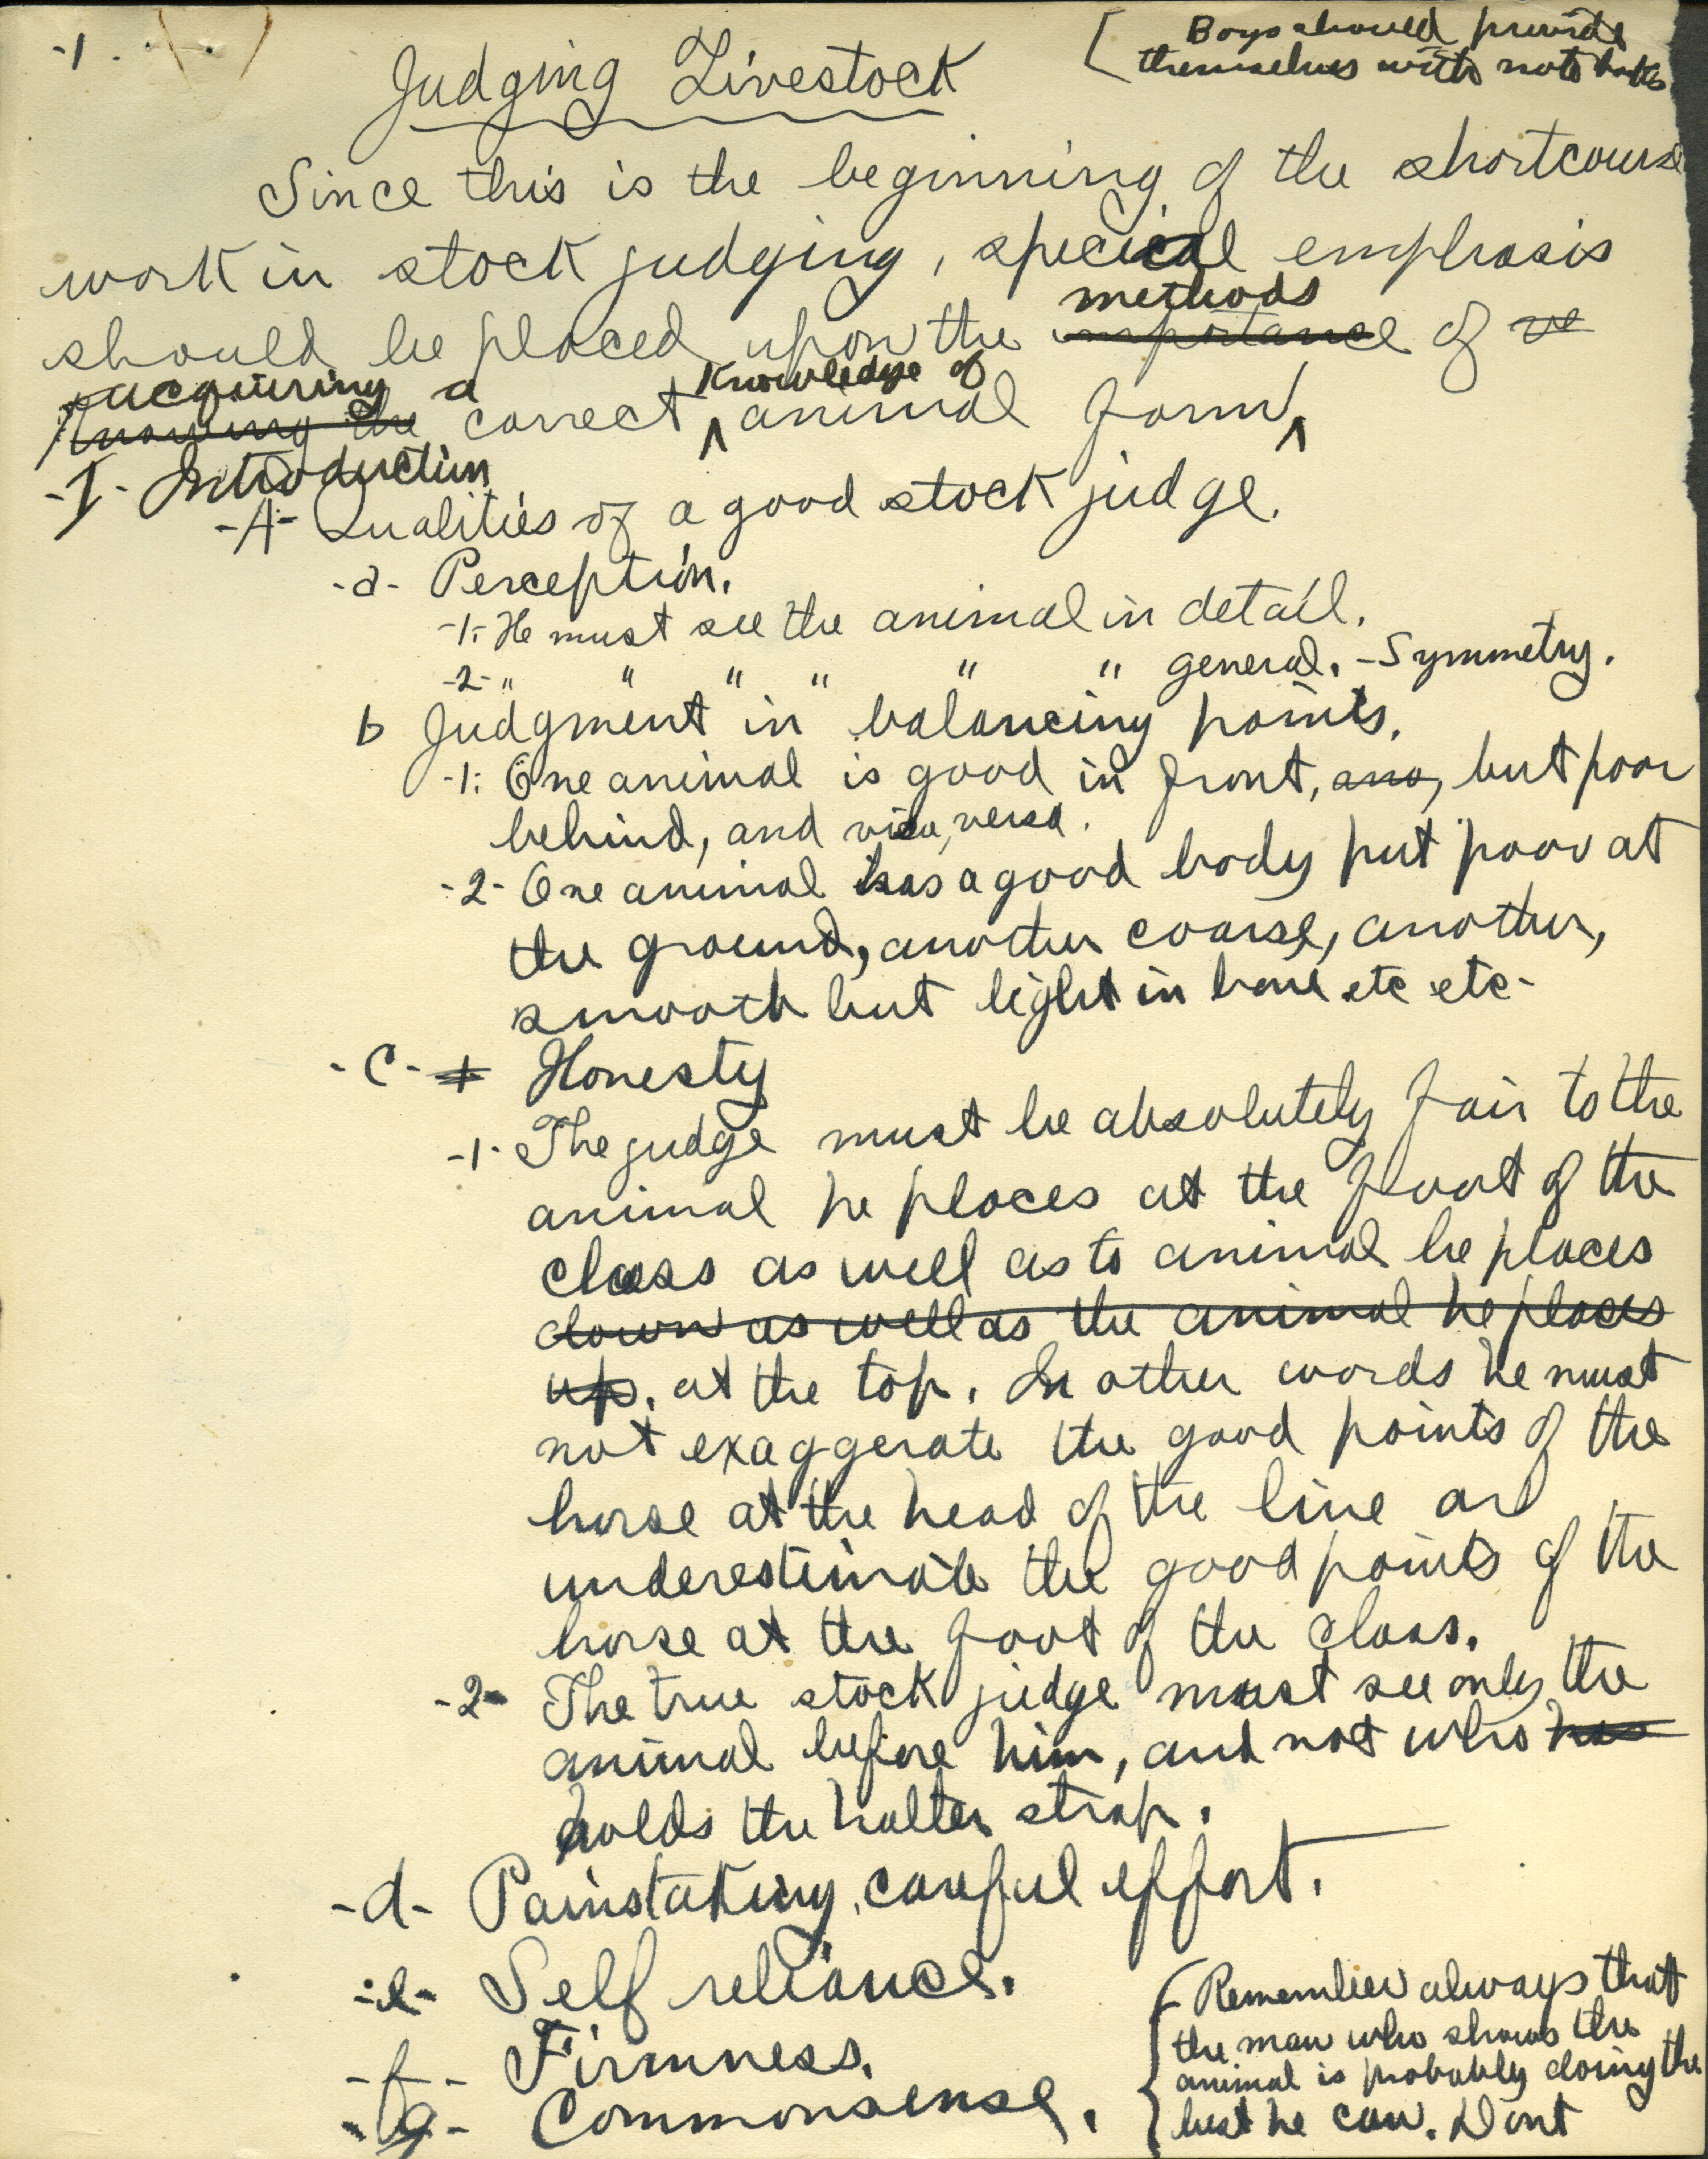 -1-
[Boys should provide
themselves with note books
Judging Livestock
Since this is the beginning of the shortcourse
work in stock judging, special emphasis
methods
should be placed upon the importance of ve
acquiring a knowledge of
Knowing the correct ^ animal form ^
-I- Introduction
-A- Qualities of a good stock judge.
-a- Perception.
-1- He must see the animal in detail.
-2- " " " " " " general. - Symmetry.
b Judgment in balancing points.
-1- One animal is good in front, and, but poor
behind, and vice versa.
-2- One animal has a good body put poor at
the ground, another coarse, another,
smooth but light in bone etc etc-
-C- 1 Honesty
-1- The judge must be absolutely fair to the
animal he places at the foot of the
class as well as to animal he places
down as well as the animal he places
up. at the top. In other words he must
not exaggerate the good points of the
horse at the head of the line and
underestimate the good points of the
horse at the foot of the class.
-2- The true stock judge must see only the
animal before him, and not who has
holds the halter strap.
-d- Painstaking, careful effort.
-e- Self reliance.
-f- Firmness.
-g- Commonsense.
{Remember always that
the man who shows the
animal is probably doing the
best he can. Dont